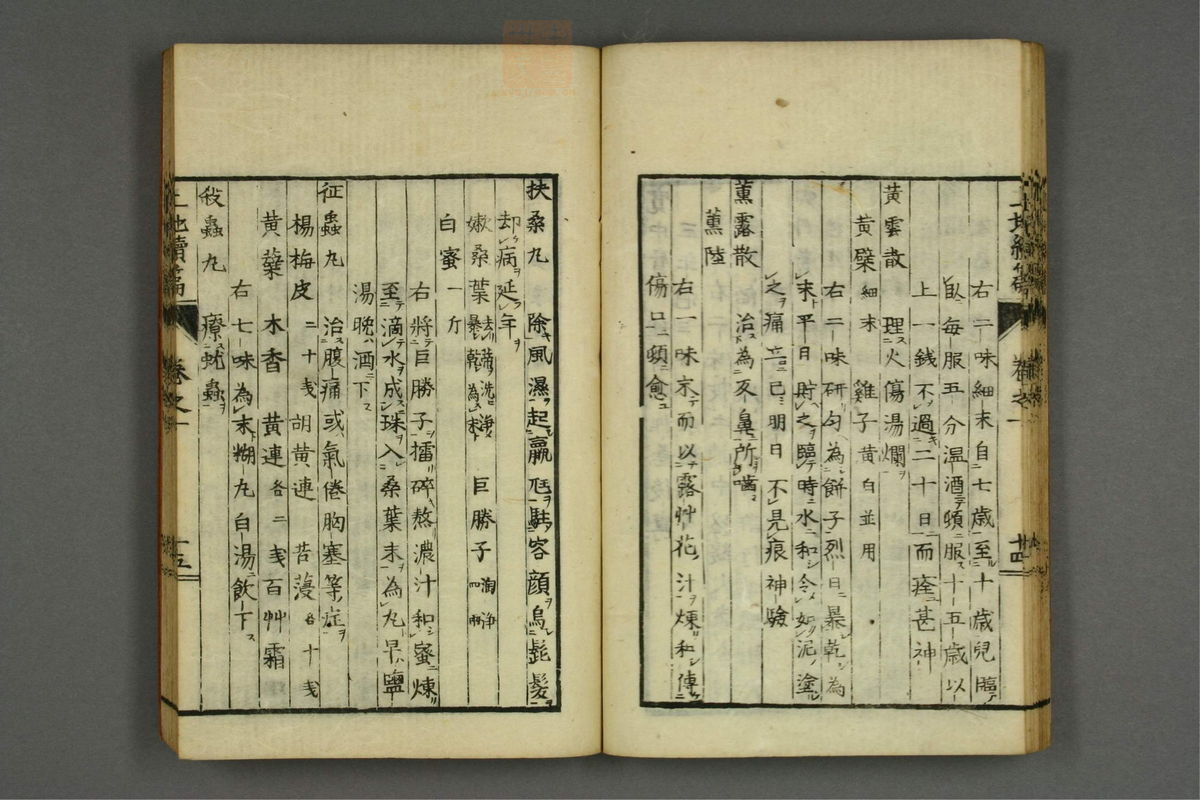 右二味細末自七歲至十歲兒臨
臥每服五分溫酒頓服十五歲以
上一錢不過二十日而痊甚神
黃雲散 理火傷湯爛
黃檗細末 雞子黃白並用
右二味研勻為餅子烈日暴乾為
末平日貯之臨時水和令如泥塗
之痛立已明日不見痕神驗
薰露散 治為豕鼻所嚙
薰陸
右一味末而以露艸花汁煉和傅
傷口頓愈
卷之一
十四
扶桑丸 除風濕起羸尫駐容顏烏髭髮
却病延年
嫩桑葉去蒂洗淨暴乾為末 巨勝子淘淨四兩
白蜜一斤
右將巨勝子擂碎熬濃汁和蜜煉
至滴水成珠入桑葉末為丸早鹽
湯晚酒下
征蟲丸 治腹痛或氣倦胸塞等症
楊梅皮二十戔 胡黃連 苦蔆各十戔
黃蘗 木香 黃連各二戔 百艸霜
右七味為末糊丸白湯飲下
殺蟲丸 療蚘蟲
續篇
卷之一
十五